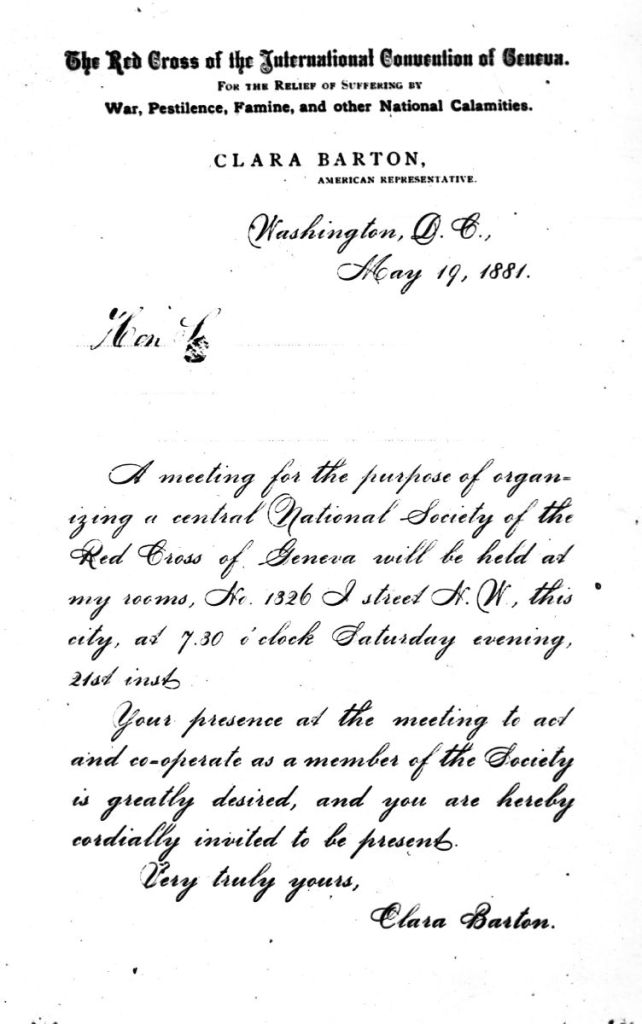 The Red Cross of the International Convention of Geneva.
For the Relief of Suffering by
War, Pestilence, Famine, and other National Calamities.
CLARA BARTON,
AMERICAN REPRESENTATIVE.
Washington, D. C.,
May 19, 1881.
Hon
A meeting for the purpose of organ=
izing a central National Society of the
Red Cross of Geneva will be held at
my rooms, No. 1326 I street N. W., this
city, at 7.30 o'clock Saturday evening,
21st inst
Your presence at the meeting to act
and co=operate as a member of the Society
is greatly desired, and you are hereby
cordially invited to be present.
Very truly yours,
Clara Barton.